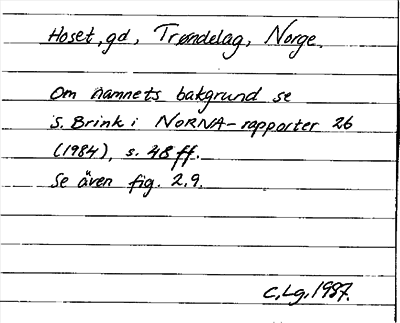 Hoset, gd, Trøndelag, Norge.
Om namnets bakgrund se
S. Brink i NORNA-rapporter 26
(1984), s. 48 ff.
Se även fig. 2, 9.
C. Lg. 1987.